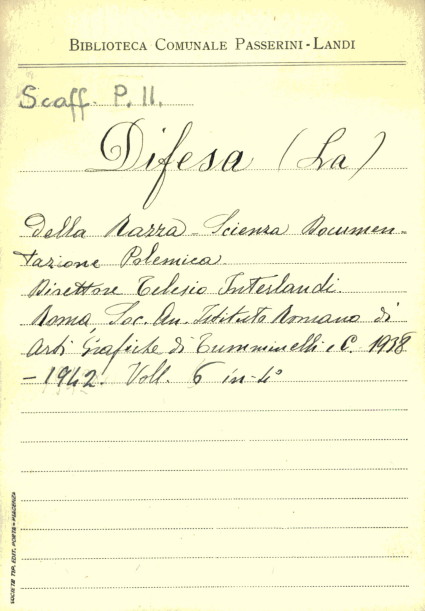 BIBLIOTECA COMUNALE PASSERINI-LANDI
Scaff. P. 11.
Difesa (La)
della Razza - Scienza Documen-
tazione Polemica.
Direttore Telesio Interlandi.
Roma, Soc. An. Istituto Romano di
Arti Grafiche di Tumminelli e C. 1938
- 1942. Voll. 6 in-4°
SOCIETÀ TIP. EDIT. PORTA - PIACENZA